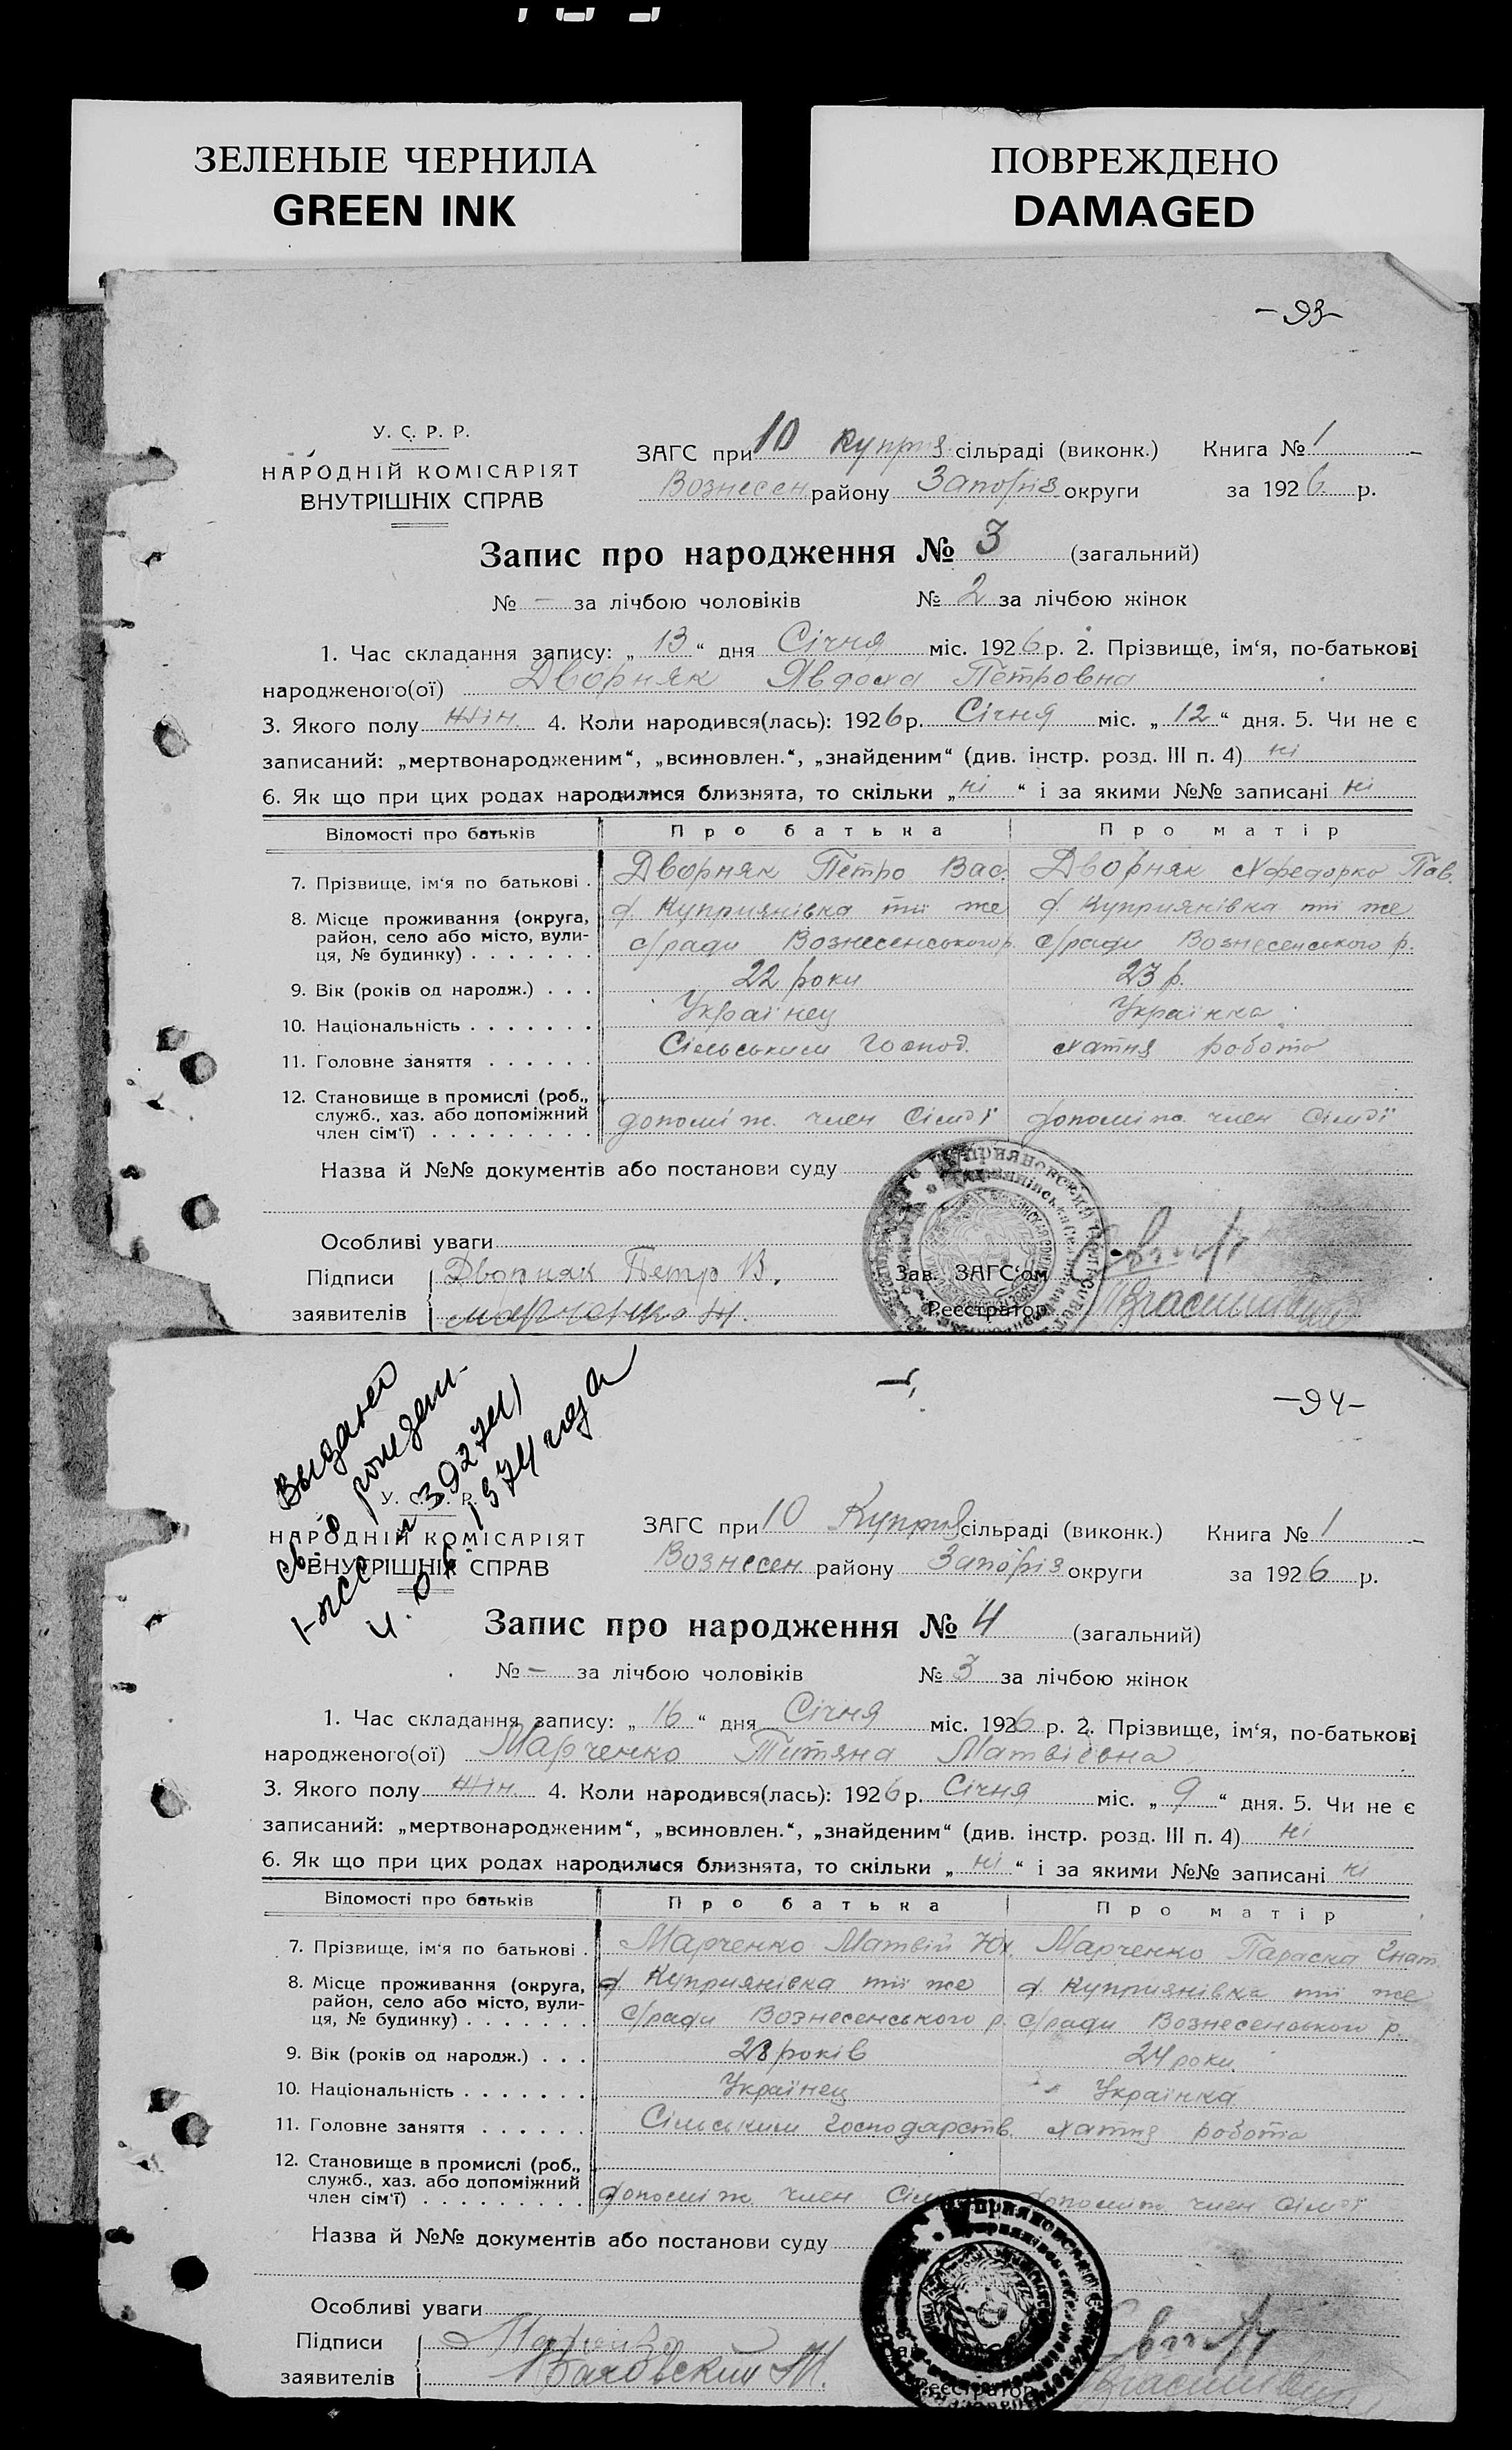 ЗЕЛЕНЫЕ ЧЕРНИЛА
GREEN INK
ПОВРЕЖДЕНО
DAMAGED
-93-
У. С. Р. Р.
НАРОДНІЙ КОМІСАРІЯТ
ВНУТРІШНІХ СПРАВ
ЗАГС при 10 Куприя сільраді (виконк.) Книга № 1
Вознесен району Запоріз округи за 1926 р.
Запис про народження № 3 (загальний)
№ - за лічбою чоловіків № 2 за лічбою жінок
1. Час складання запису: „ 13 “ дня Січня міс. 1926 р. 2. Прізвище, ім‘я, по-батькові
народженого(ої) Дворняк Явдоха Петровна
3. Якого полу жін. 4. Коли народився(лась): 1926 р. Січня міс. „ 12 “ дня. 5. Чи не є
записаний: „мертвонародженим“, „всиновлен.“, „знайденим“ (див. інстр. розд. III п. 4) ні
6. Як що при цих родах народилися близнята, то скільки „ ні “ і за якими №№ записані ні
Відомості про батьків Про батька Про матір
7. Прізвище, ім‘я по батькові . Дворняк Петро Вас. Дворняк Пав.
8. Місце проживання (округа, район, село або місто, вулиця, № будинку) . . . . . . . д. Куприянівка тії же с/ради Вознесенського р. д. Куприянівка тії же с/ради Вознесенського р.
9. Вік (років од народж.) . . . 22 роки 23 р.
10. Національність . . . . . . . Українец Українка
11. Головне заняття . . . . . . Сільським Господ. хатня робота
12. Становище в промислі (роб., служб., хаз. або допоміжний член сім‘ї) . . . . . . . . . допоміж. член Сімьї допоміж. член Сімьї
Назва й №№ документів або постанови суду
Особливі уваги
Підписи Дворняк Петр В. Зав. ЗАГС‘ом
заявителів Реєстратор
-94-
Выдано
св. о рожден.
1974 года
У. С. Р. Р.
НАРОДНІЙ КОМІСАРІЯТ
ВНУТРІШНІХ СПРАВ
ЗАГС при 10 Куприя сільраді (виконк.) Книга № 1
Вознесен району Запоріз округи за 1926 р.
Запис про народження № 4 (загальний)
№ - за лічбою чоловіків № 3 за лічбою жінок
1. Час складання запису: „ 16 “ дня Січня міс. 1926 р. 2. Прізвище, ім‘я, по-батькові
народженого(ої) Марченко Титяна Матвіевна
3. Якого полу жін. 4. Коли народився(лась): 1926 р. Січня міс. „ 9 “ дня. 5. Чи не є
записаний: „мертвонародженим“, „всиновлен.“, „знайденим“ (див. інстр. розд. III п. 4) ні
6. Як що при цих родах народилися близнята, то скільки „ ні “ і за якими №№ записані ні
Відомості про батьків Про батька Про матір
7. Прізвище, ім‘я по батькові . Марченко Матвій Юх. Марченко Параска Гнат.
8. Місце проживання (округа, район, село або місто, вулиця, № будинку) . . . . . . . д. Куприянівка тії же с/ради Вознесенського р. д. Куприянівка тії же с/ради Вознесенського р.
9. Вік (років од народж.) . . . 28 років 24 роки
10. Національність . . . . . . . Українец Українка
11. Головне заняття . . . . . . Сільським Господарств. хатня робота
12. Становище в промислі (роб., служб., хаз. або допоміжний член сім‘ї) . . . . . . . . . допоміж. член Сімьї допоміж. член Сімьї
Назва й №№ документів або постанови суду
Особливі уваги
Підписи
заявителів Реєстратор